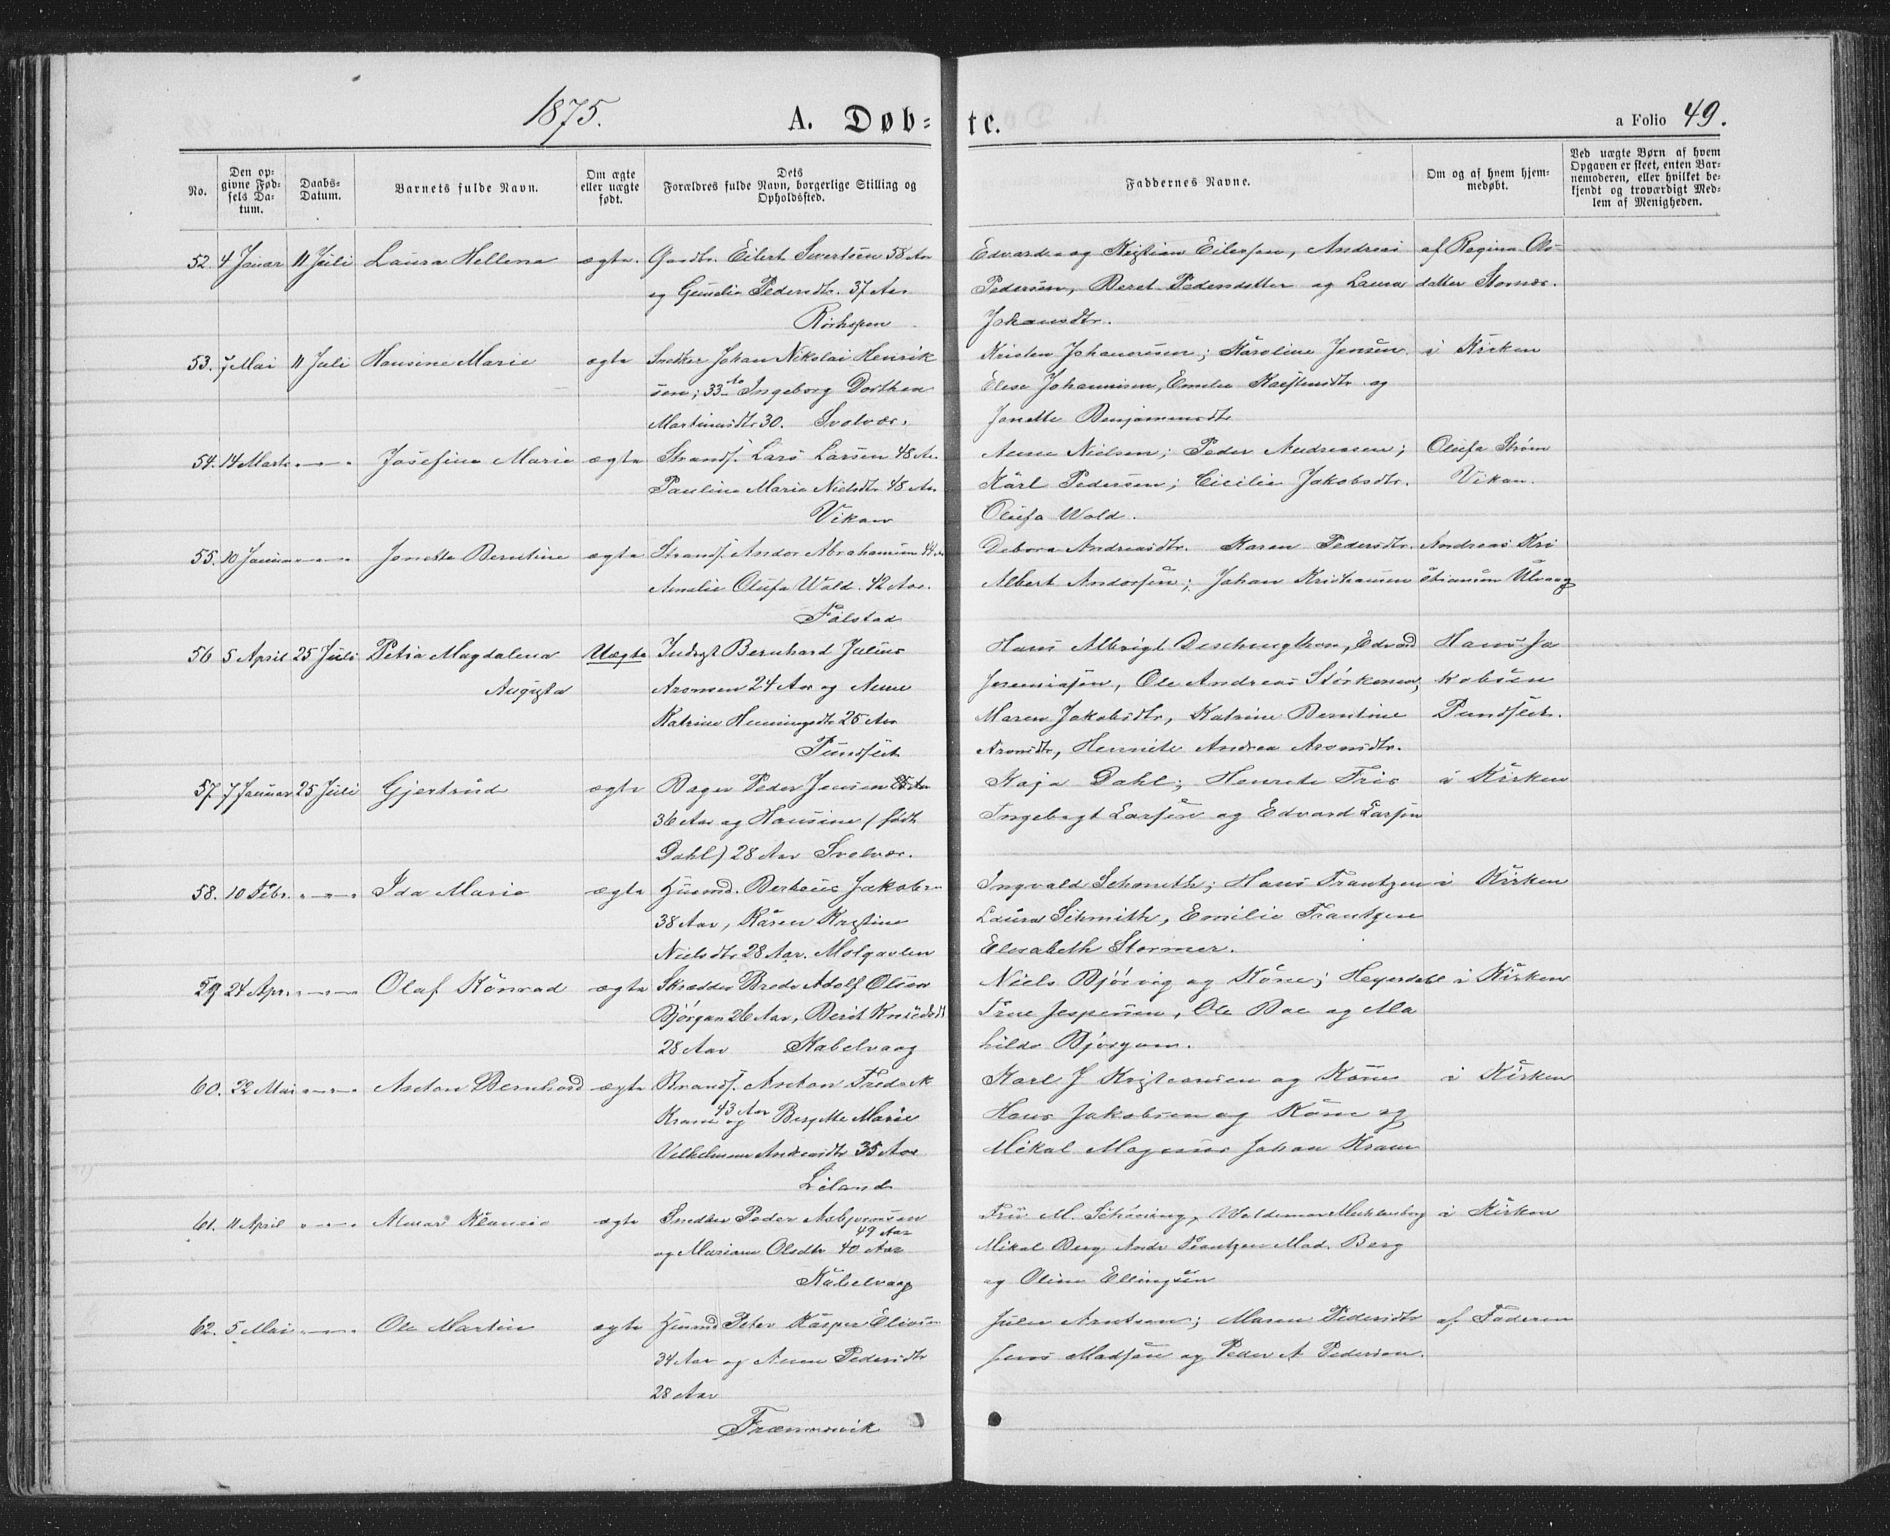 1875.
A. Døb=
te.
a Folio 49.
No.
Den op-
givne Fød-
sels Da-
tum.
Daabs-
Datum.
Barnets fulde Navn.
Om ægte
eller uægte
født.
Dets
Forældres fulde Navn, borgerlige Stilling og
Opholdssted.
Faddernes Navne.
Om og af hvem hjem-
medøbt.
Ved uægte Børn af hvem
Opgaven er skeet, enten Bar-
nemoderen, eller hvilket be-
kjendt og troværdigt Med-
lem af Menigheden.
52. 4 Januar 11 Juli Laura Hellena ægte. Eilert Sivertsen 58 Aar
og Pedersdtr. 37 Aar
Rørhopen
Edvarda og Kristian Eilersen, Andreas
Pedersen, Beret Pedersdatter og Laura
Johansdtr.
af Regina Ols-
datter Stornæs.
53. 7 Mai 11 Juli Hansine Marie ægte Snedker Johan Nikolai Henrik
sen; 33 Aar Ingeborg Dorthea
Martinusdtr 30. Svolvær.
Kristen Johannesen; Karoline Jensen
Johannesen, Emilie og
Janette Benjaminsdtr
i Kirken
54. 14 Marts Josefine Marie ægte Strands. Lars Larsen 48 Aar
Pauline Marie Nielsdtr. 48 Aar
Vikan
Anne Nielsen; Peder Andreasen;
Karl Pedersen; Cicilie Jakobsdtr.
Olufa Wold.
Olufa Strøm
Vikan.
55. 10 Januar Janetta Berntine ægte Strands. Andor Abrahamsen 44 Aar
Amalie Olufa Wold. 42 Aar.
Følstad
Debora Andreasdtr. Karen Pedersdtr.
Albert Andorsen; Johan Kristiansen
Andreas Kri
stiansen Ulvaag
56 5 April 25 Juli Petra Magdalena
Augusta
Uægte Bernhard Julius
Aronsen 24 Aar og Anne
Katrine Henningsdtr 25 Aar
Pundslet
Hans Albrigt Edvard
Jeremiasen, Ole Andreas Størkersen,
Maren Jakobsdtr, Katrine Berntine
Aronsdtr, Andrea Aronsdtr.
Hans Ja
kobsen
Pundslet.
57. 7 Januar 25 Juli Gjertrud ægte Bager Peder Jensen
36 Aar og Hansine (født
Dahl) 28 Aar Svolvær.
Kaja Dahl; Henrete Friis
Ingebrgt Larsen og Edvard Larsen
i Kirken
58. 10 Febr. Ida Marie ægte Husmd. Jakobs-
38 Aar, Karen Kristine
Nielsdtr 28 Aar. Molgavlen
Ingvald Schmith; Hans Frantzen
Laura Schmith, Emilie Frantzen
Elisabeth Stormer.
i Kirken
59 24 Apr. Olaf Konrad ægte Skrædder Brede Adolf Olsen
Bjørgan 26 Aar, Berit
28 Aar Kabelvaag
Niels Bjørvig og Kone; Heyerdahl
Frue Jespersen, Ole Boe og Ma
tilde Bjørgan.
i Kirken
60. 22 Mai Anton Bernhard ægte Strands. Anton Fredrik
Kram 43 Aar og Bergitte Marie
Vilhelmine Andreasdtr 35 Aar
Liland
Karl J Kristiansen og Kone
Hans Jakobsen og Kone og
Mikal Magnus Johan Kram
i Kirken
61. 11 April ægte Snedker Peder Asbjørnsen
49 Aar
og Mariane Olsdtr 40 Aar
Kabelvaag
Fru M. Schøning, Waldemar Mechlenborg
Mikal Berg Andr Frantzen Mad. Berg
og Oline Ellingsen
i Kirken
62. 5 Mai Ole Martin ægte Husmd Peter Kasper
34 Aar og Anne Pedersdtr
28 Aar
Julie Arntsen; Maren Pedersdtr
Jens Madsen og Peder A Pedersen.
af Faderen